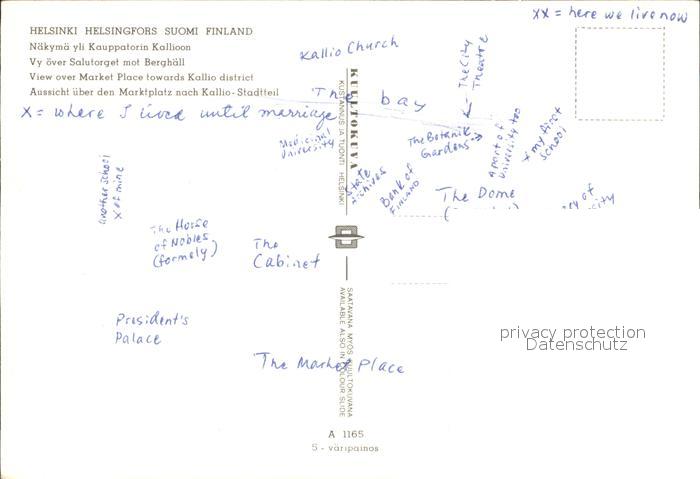 xx = here we live now
HELSINKI HELSINGFORS SUOMI FINLAND
Näkymä yli Kauppatorin Kallioon
Vy över Salutorget mot Berghäll
View over Market Place towards Kallio district
Aussicht über den Marktplatz nach Kallio-Stadtteil
x = where I lived until marriage
Kallio Church
The bay
The City
Theatre
The Botanic
Gardens
A part of
University too
x my first
School
Medicinal
University
State
Archives
Bank of
FINLAND
The Dome
another school
x of mine
The House
of Nobles
(formely)
The
Cabinet
President's
Palace
The Market Place
KUULTOKUVA
KUSTANNUS JA TUONTI HELSINKI
SAATAVANA MYÖS KUULTOKUVANA
AVAILABLE ALSO IN COLOUR SLIDE
A 1165
5 - väripainos
privacy protection
Datenschutz